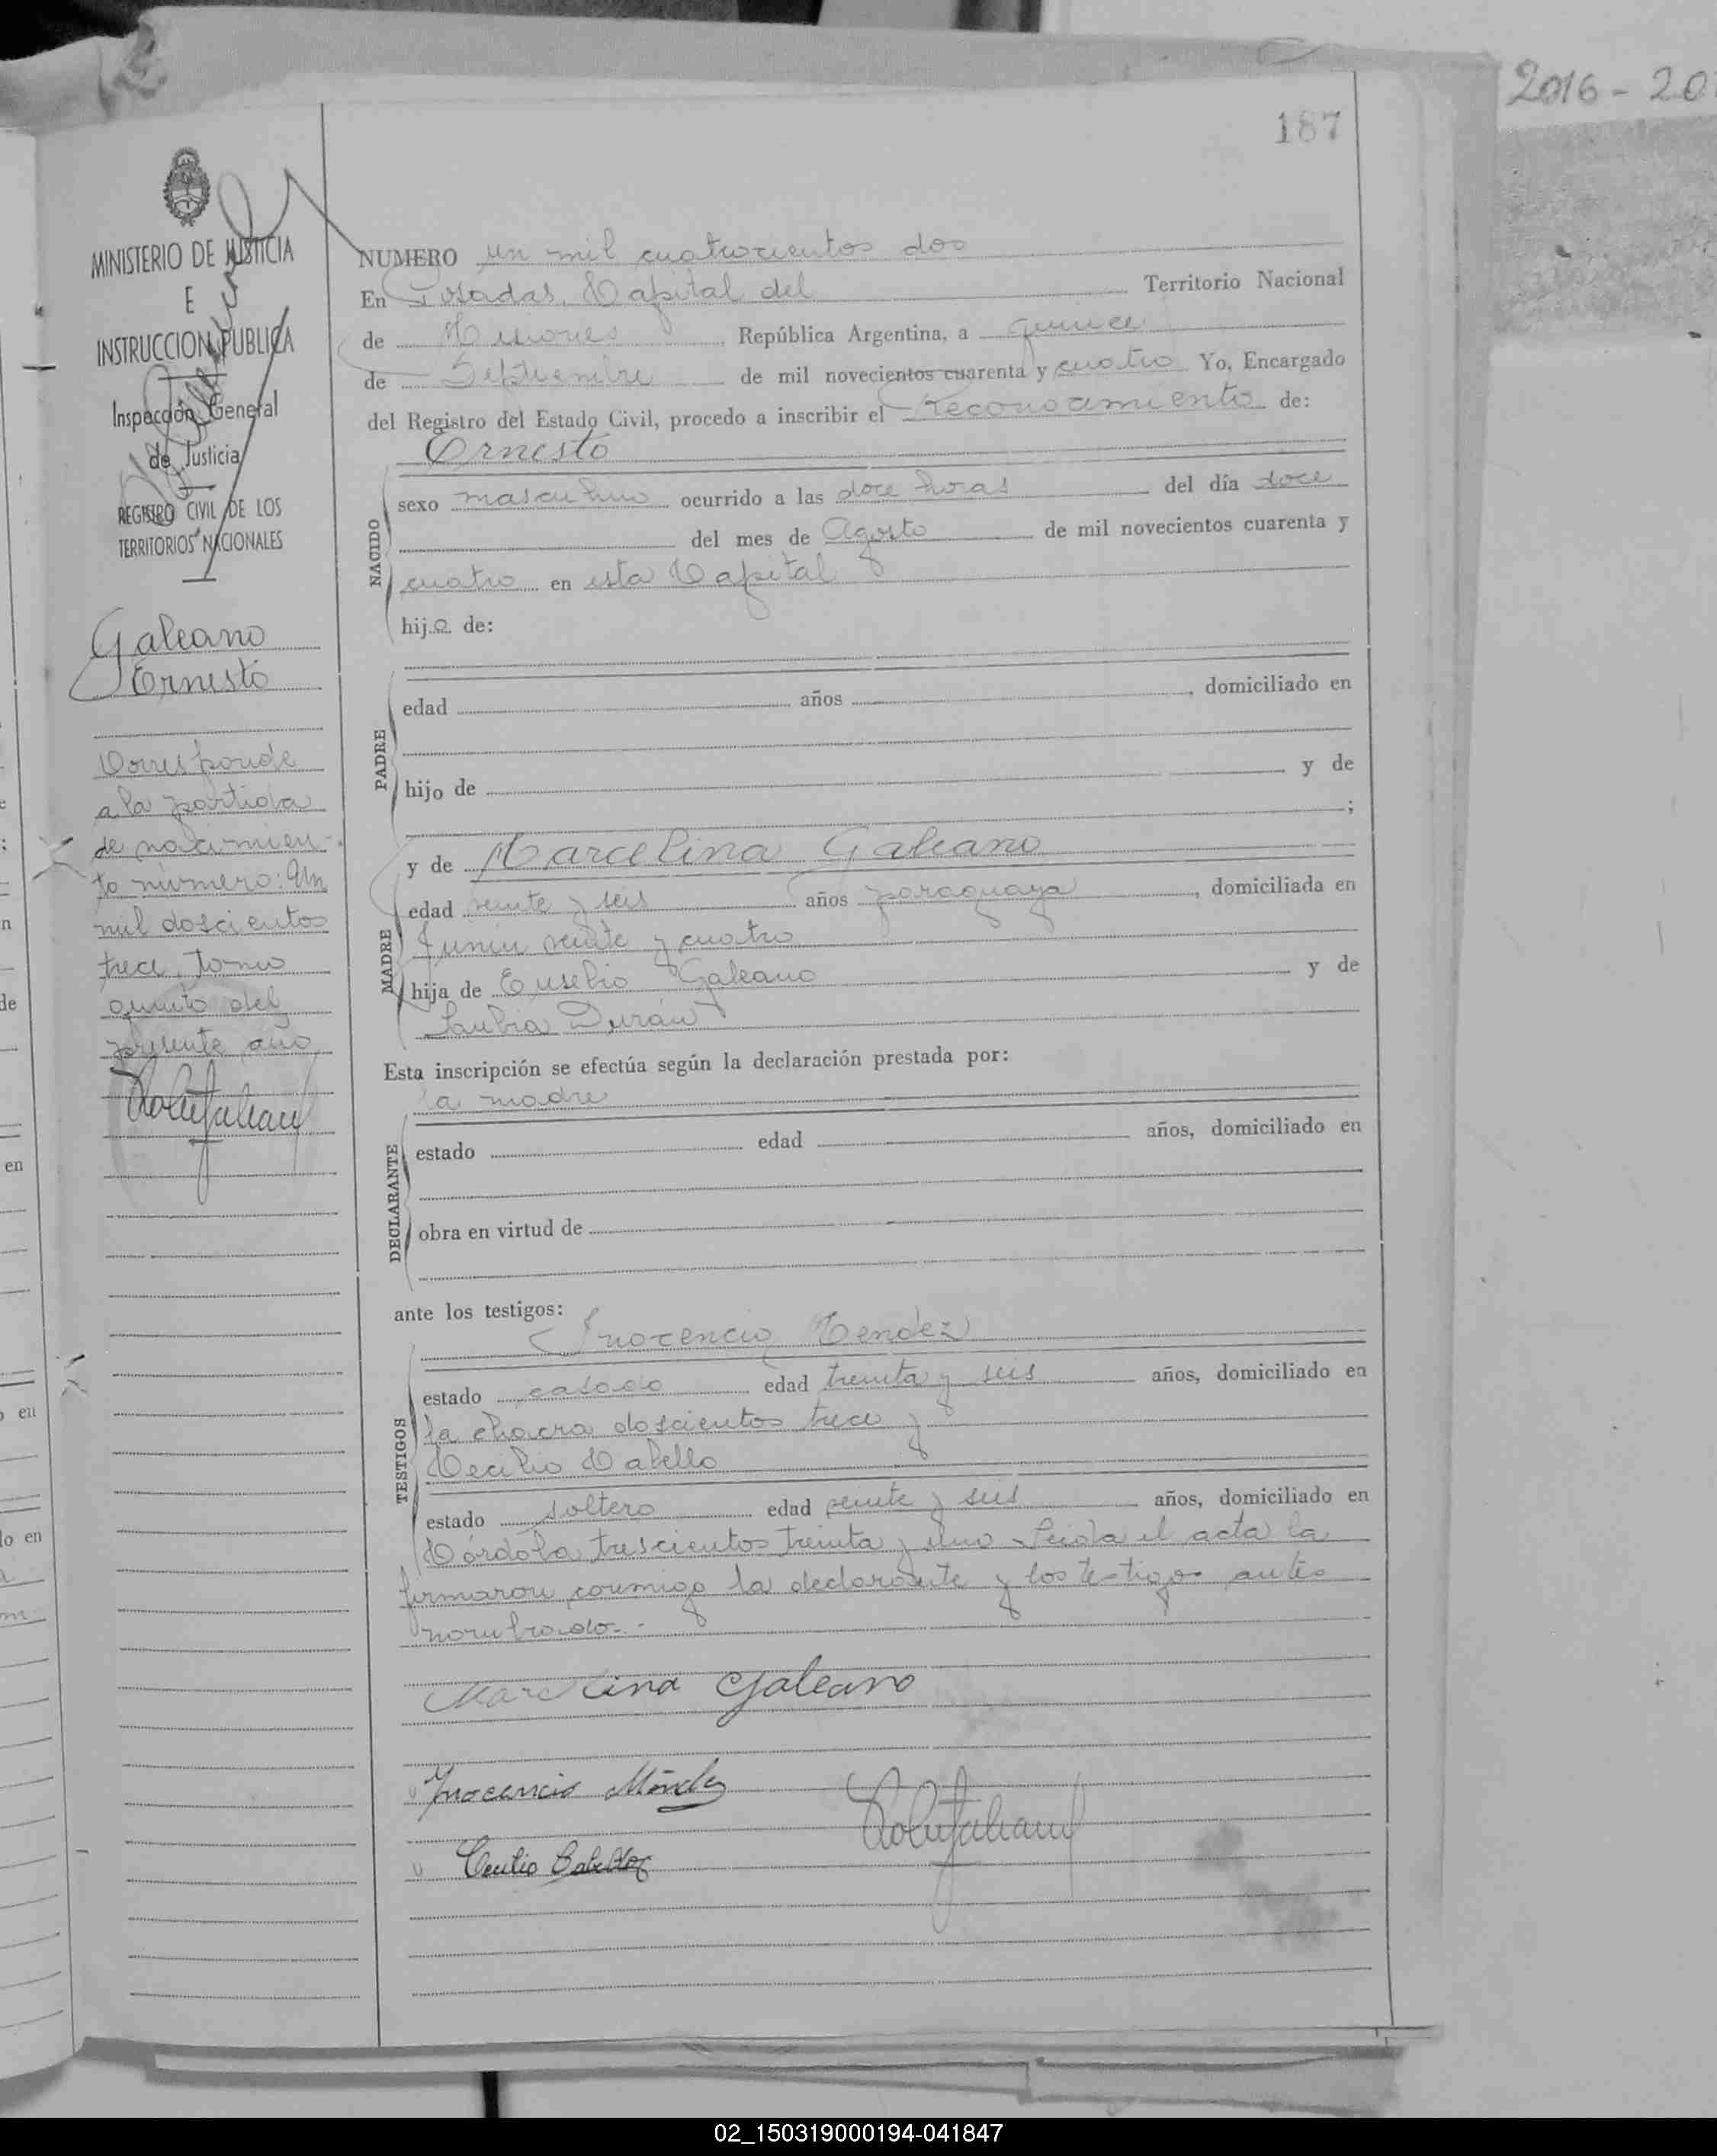 2016-20
187
MINISTERIO DE JUSTICIA
E
INSTRUCCION PUBLICA
Inspección General
de Justicia
REGISTRO CIVIL DE LOS
TERRITORIOS NACIONALES
Galeano
Ernesto
Corresponde
a la partida
de nacimien-
to número: Un
mil doscientos
trece, tomo
quinto del
presente año
NUMERO un mil cuatrocientos dos
En Posadas, Capital del Territorio Nacional
de Misiones, República Argentina, a quince
de Septiembre de mil novecientos cuarenta y cuatro Yo, Encargado
del Registro del Estado Civil, procedo a inscribir el Reconocimiento de:
Ernesto
NACIDO
sexo masculino ocurrido a las doce horas del día doce
del mes de Agosto de mil novecientos cuarenta y
cuatro en esta Capital
hijo de:
PADRE
edad años , domiciliado en
hijo de y de
;
y de Marcelina Galeano
MADRE
edad veinte y seis años paraguaya, domiciliada en
Junín veinte y cuatro
hija de Eusebio Galeano y de
Durán
Esta inscripción se efectúa según la declaración prestada por:
la madre
DECLARANTE
estado edad años, domiciliado en
obra en virtud de
ante los testigos:
Inocencio Mendez
TESTIGOS
estado casado edad treinta y seis años, domiciliado en
la chacra doscientos trece y
Cecilio Cabello
estado soltero edad veinte y seis años, domiciliado en
Córdoba trescientos treinta y uno. Leida el acta la
firmaron conmigo la declarante y los testigos antes
nombrado.-
Marcelina Galeano
Inocencio Méndez
Cecilio Cabello
02_150319000194-041847